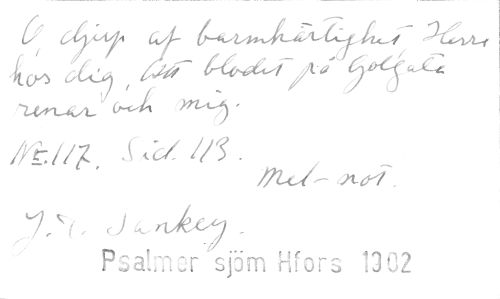 O, djup af barmhärtighet, Herre
hos dig, Att blodet på Golgata
renar och mig.
NE.117. Sid. 113.
Mel-not.
J. D. Sankey.
Psalmer sjöm Hfors 1902